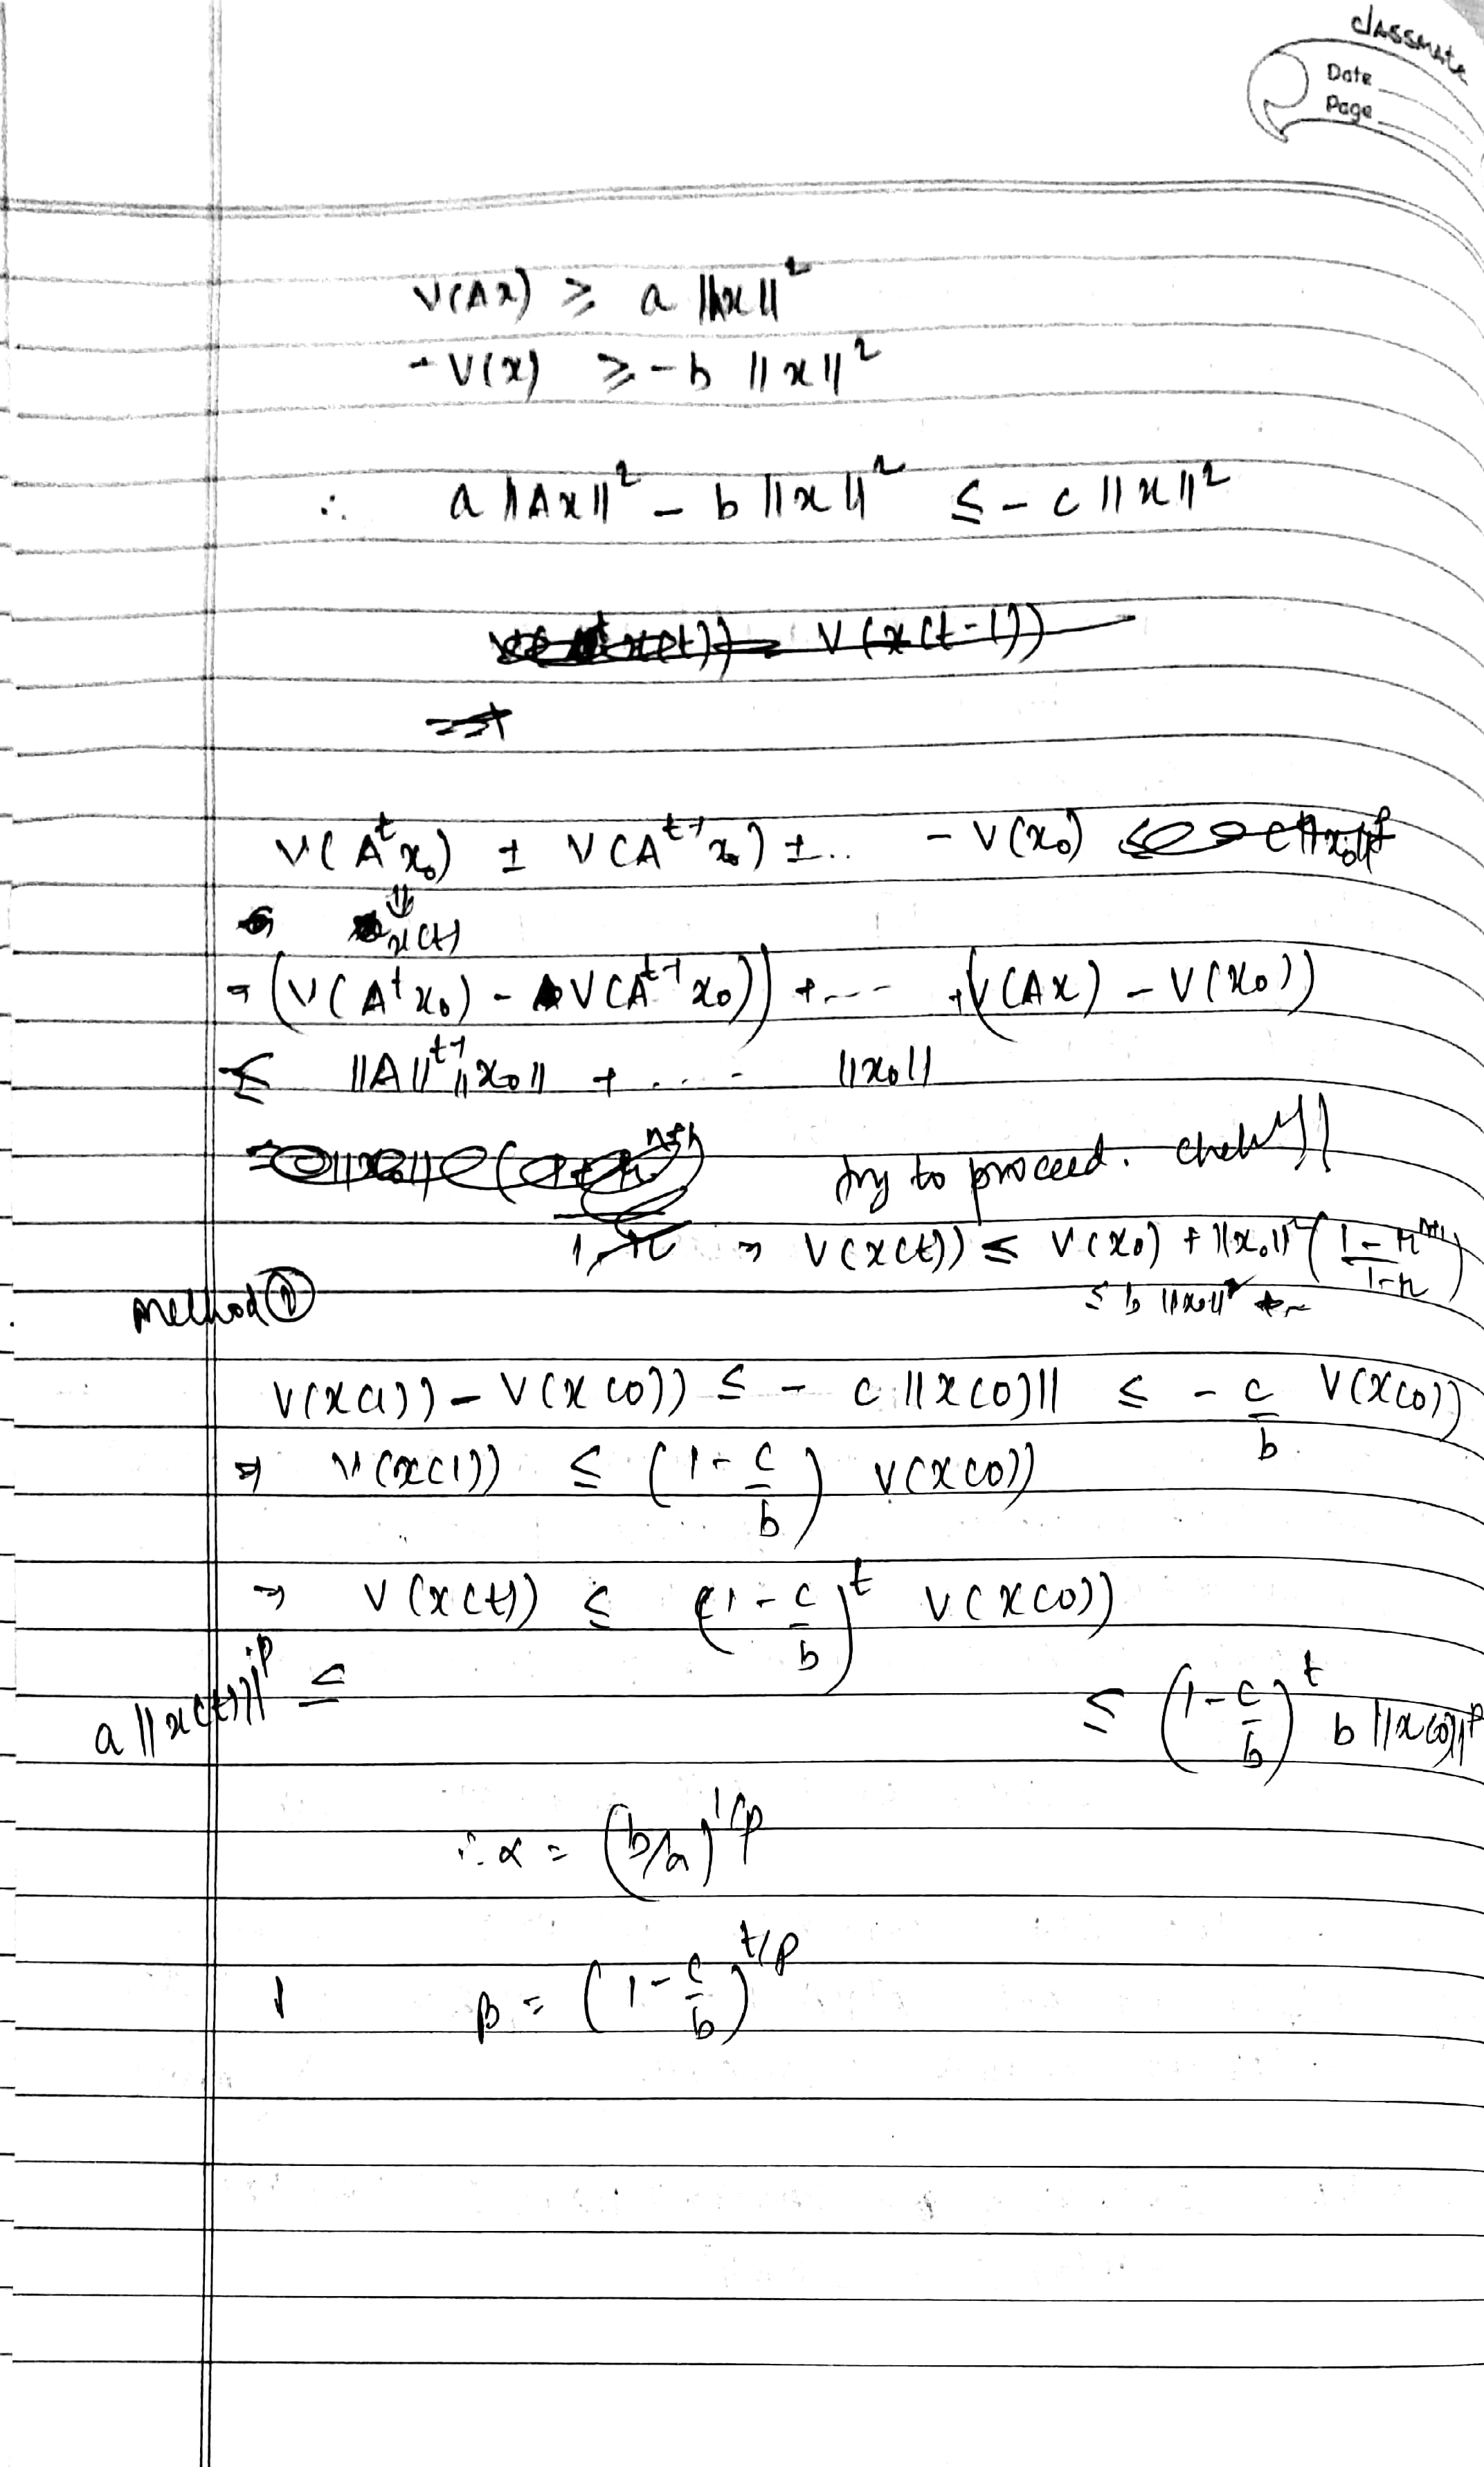 classmate
Date
Page
V(Ax) ≥ a ||Ax||²
- V(x) ≥ -b ||x||²
∴ a ||Ax||² - b ||x||² ≤ - c ||x||²
V(x(t-1))
V(Aᵗx₀) ± V(Aᵗ⁻¹x₀) ± .. - V(x₀) ≤
x(t)
= (V(Aᵗx₀) - V(Aᵗ⁻¹x₀)) + --- + (V(Ax) - V(x₀))
≤ ||A||ᵗ⁻¹||x₀|| + .... ||x₀||
try to proceed.
⇒ V(x(t)) ≤ V(x₀) + ||x₀||² (1-rⁿ⁺¹/1-r)
≤ b ||x₀||² + ~
Method ①
V(x(1)) - V(x(0)) ≤ - c ||x(0)|| ≤ - c/b V(x(0))
⇒ V(x(1)) ≤ (1 - c/b) V(x(0))
⇒ V(x(t)) ≤ (1 - c/b)ᵗ V(x(0))
a ||x(t)||ᵖ ≤ ≤ (1 - c/b)ᵗ b ||x(0)||ᵖ
∴ α = (b/a)^1/p
β = (1 - c/b)^t/p